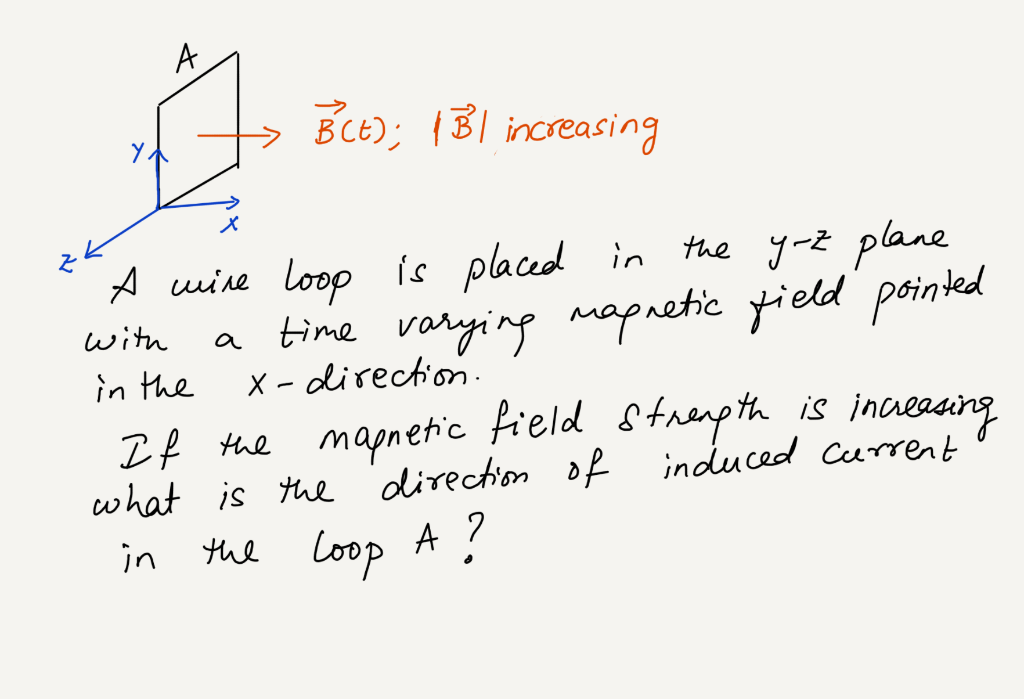 A
B(t); |B| increasing
Y
X
Z
A wire loop is placed in the y-z plane
with a time varying magnetic field pointed
in the x-direction.
If the magnetic field strength is increasing
what is the direction of induced current
in the loop A?